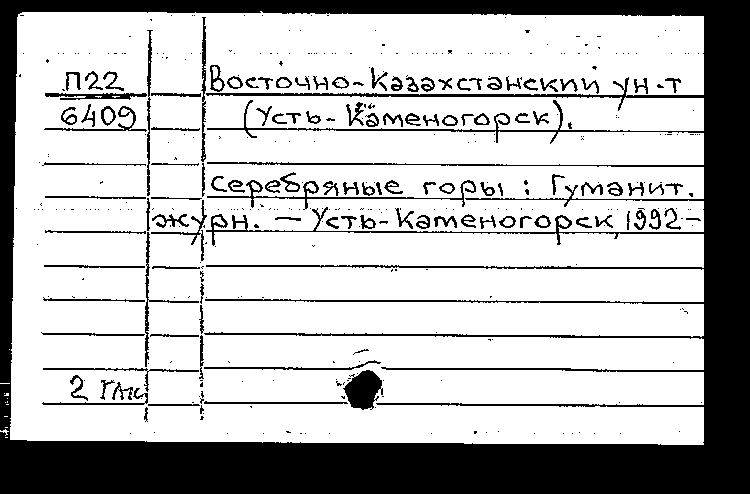 П22 Восточно-Казахстанский ун-т
6409 (Усть-Каменогорск).
Серебряные горы : Гуманит.
журн. — Усть-Каменогорск, 1992-
2